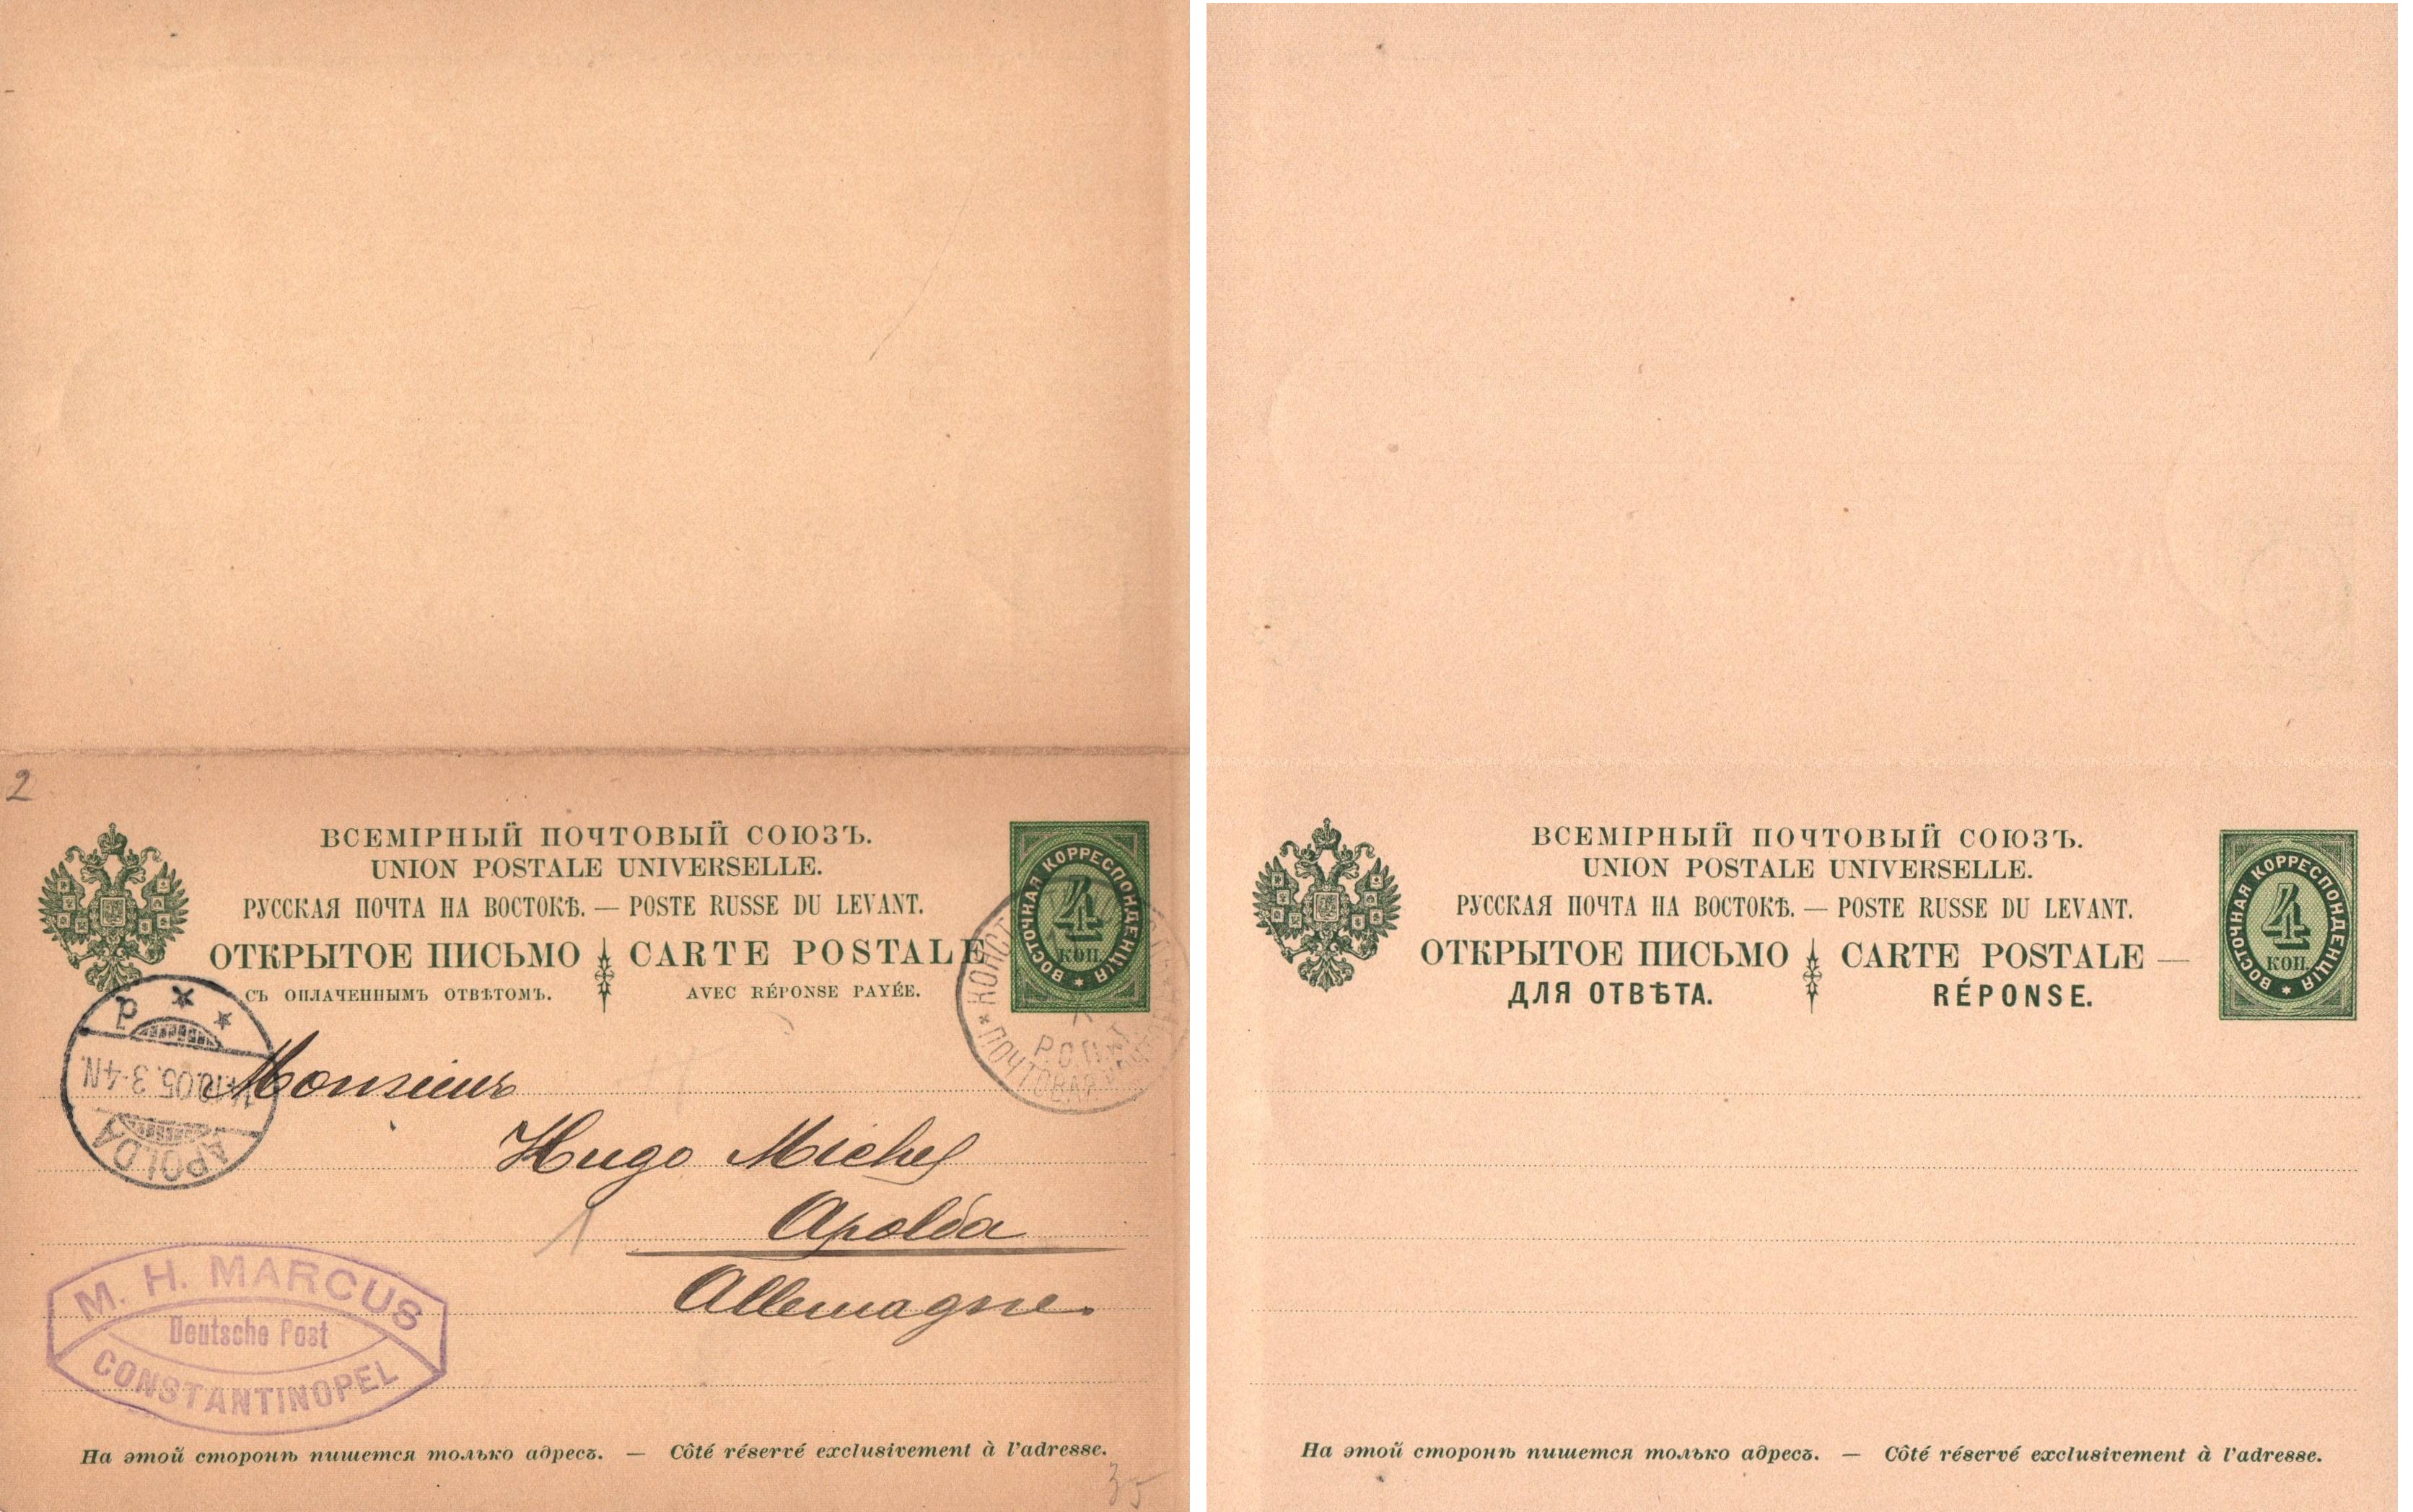 2
ВСЕМІРНЫЙ ПОЧТОВЫЙ СОЮЗЪ.
UNION POSTALE UNIVERSELLE.
РУССКАЯ ПОЧТА НА ВОСТОКѢ. — POSTE RUSSE DU LEVANT.
ОТКРЫТОЕ ПИСЬМО CARTE POSTALE
СЪ ОПЛАЧЕННЫМЪ ОТВѢТОМЪ. AVEC RÉPONSE PAYÉE.
ВОСТОЧНАЯ КОРРЕСПОНДЕНЦІЯ
4
КОП.
КОНСТ
Р.О.П.иТ.
ПОЧТОВАЯ
APOLDA
.10.05. 3-4N.
d
Monsieur
Hugo Michel
Apolda
Allemagne.
1
M. H. MARCUS
Deutsche Post
CONSTANTINOPEL
На этой сторонѣ пишется только адресъ. — Côté réservé exclusivement à l'adresse.
35
ВСЕМІРНЫЙ ПОЧТОВЫЙ СОЮЗЪ.
UNION POSTALE UNIVERSELLE.
РУССКАЯ ПОЧТА НА ВОСТОКѢ. — POSTE RUSSE DU LEVANT.
ОТКРЫТОЕ ПИСЬМО CARTE POSTALE —
ДЛЯ ОТВѢТА. RÉPONSE.
ВОСТОЧНАЯ КОРРЕСПОНДЕНЦІЯ
4
КОП.
На этой сторонѣ пишется только адресъ. — Côté réservé exclusivement à l'adresse.